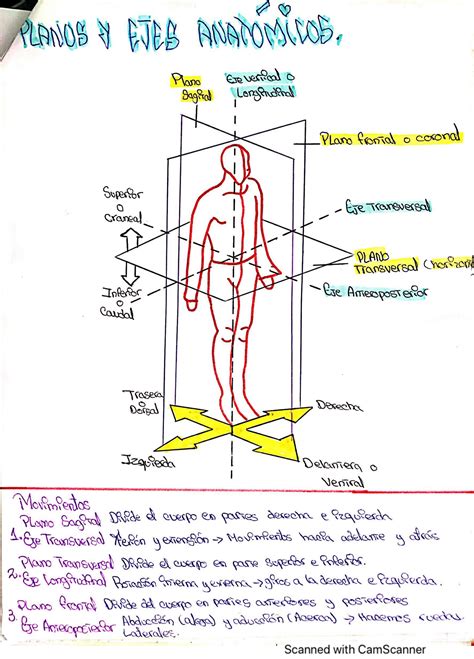 PLANOS Y EJES ANATÓMICOS.
Plano Sagital
Eje vertical o Longitudinal
Plano frontal o coronal
Superior o Craneal
Eje Transversal
PLANO Transversal (horizon
Inferior o Caudal
Eje Anteroposterior
Trasera o Dorsal
Derecha
Izquierda
Delantera o Ventral
Movimientos
Plano Sagital Divide el cuerpo en partes derecha e izquierda
1. Eje Transversal flexión y extensión → Movimientos hacia adelante y atrás
Plano Transversal Divide el cuerpo en parte superior e inferior.
2. Eje Longitudinal Rotación interna y externa → giros a la derecha e izquierda.
3. Plano frontal Divide del cuerpo en partes anteriores y posteriores
Eje Anteroposterior Abducción (aleja) y aducción (Acerca) → Hacemos ruedas Laterales.
Scanned with CamScanner